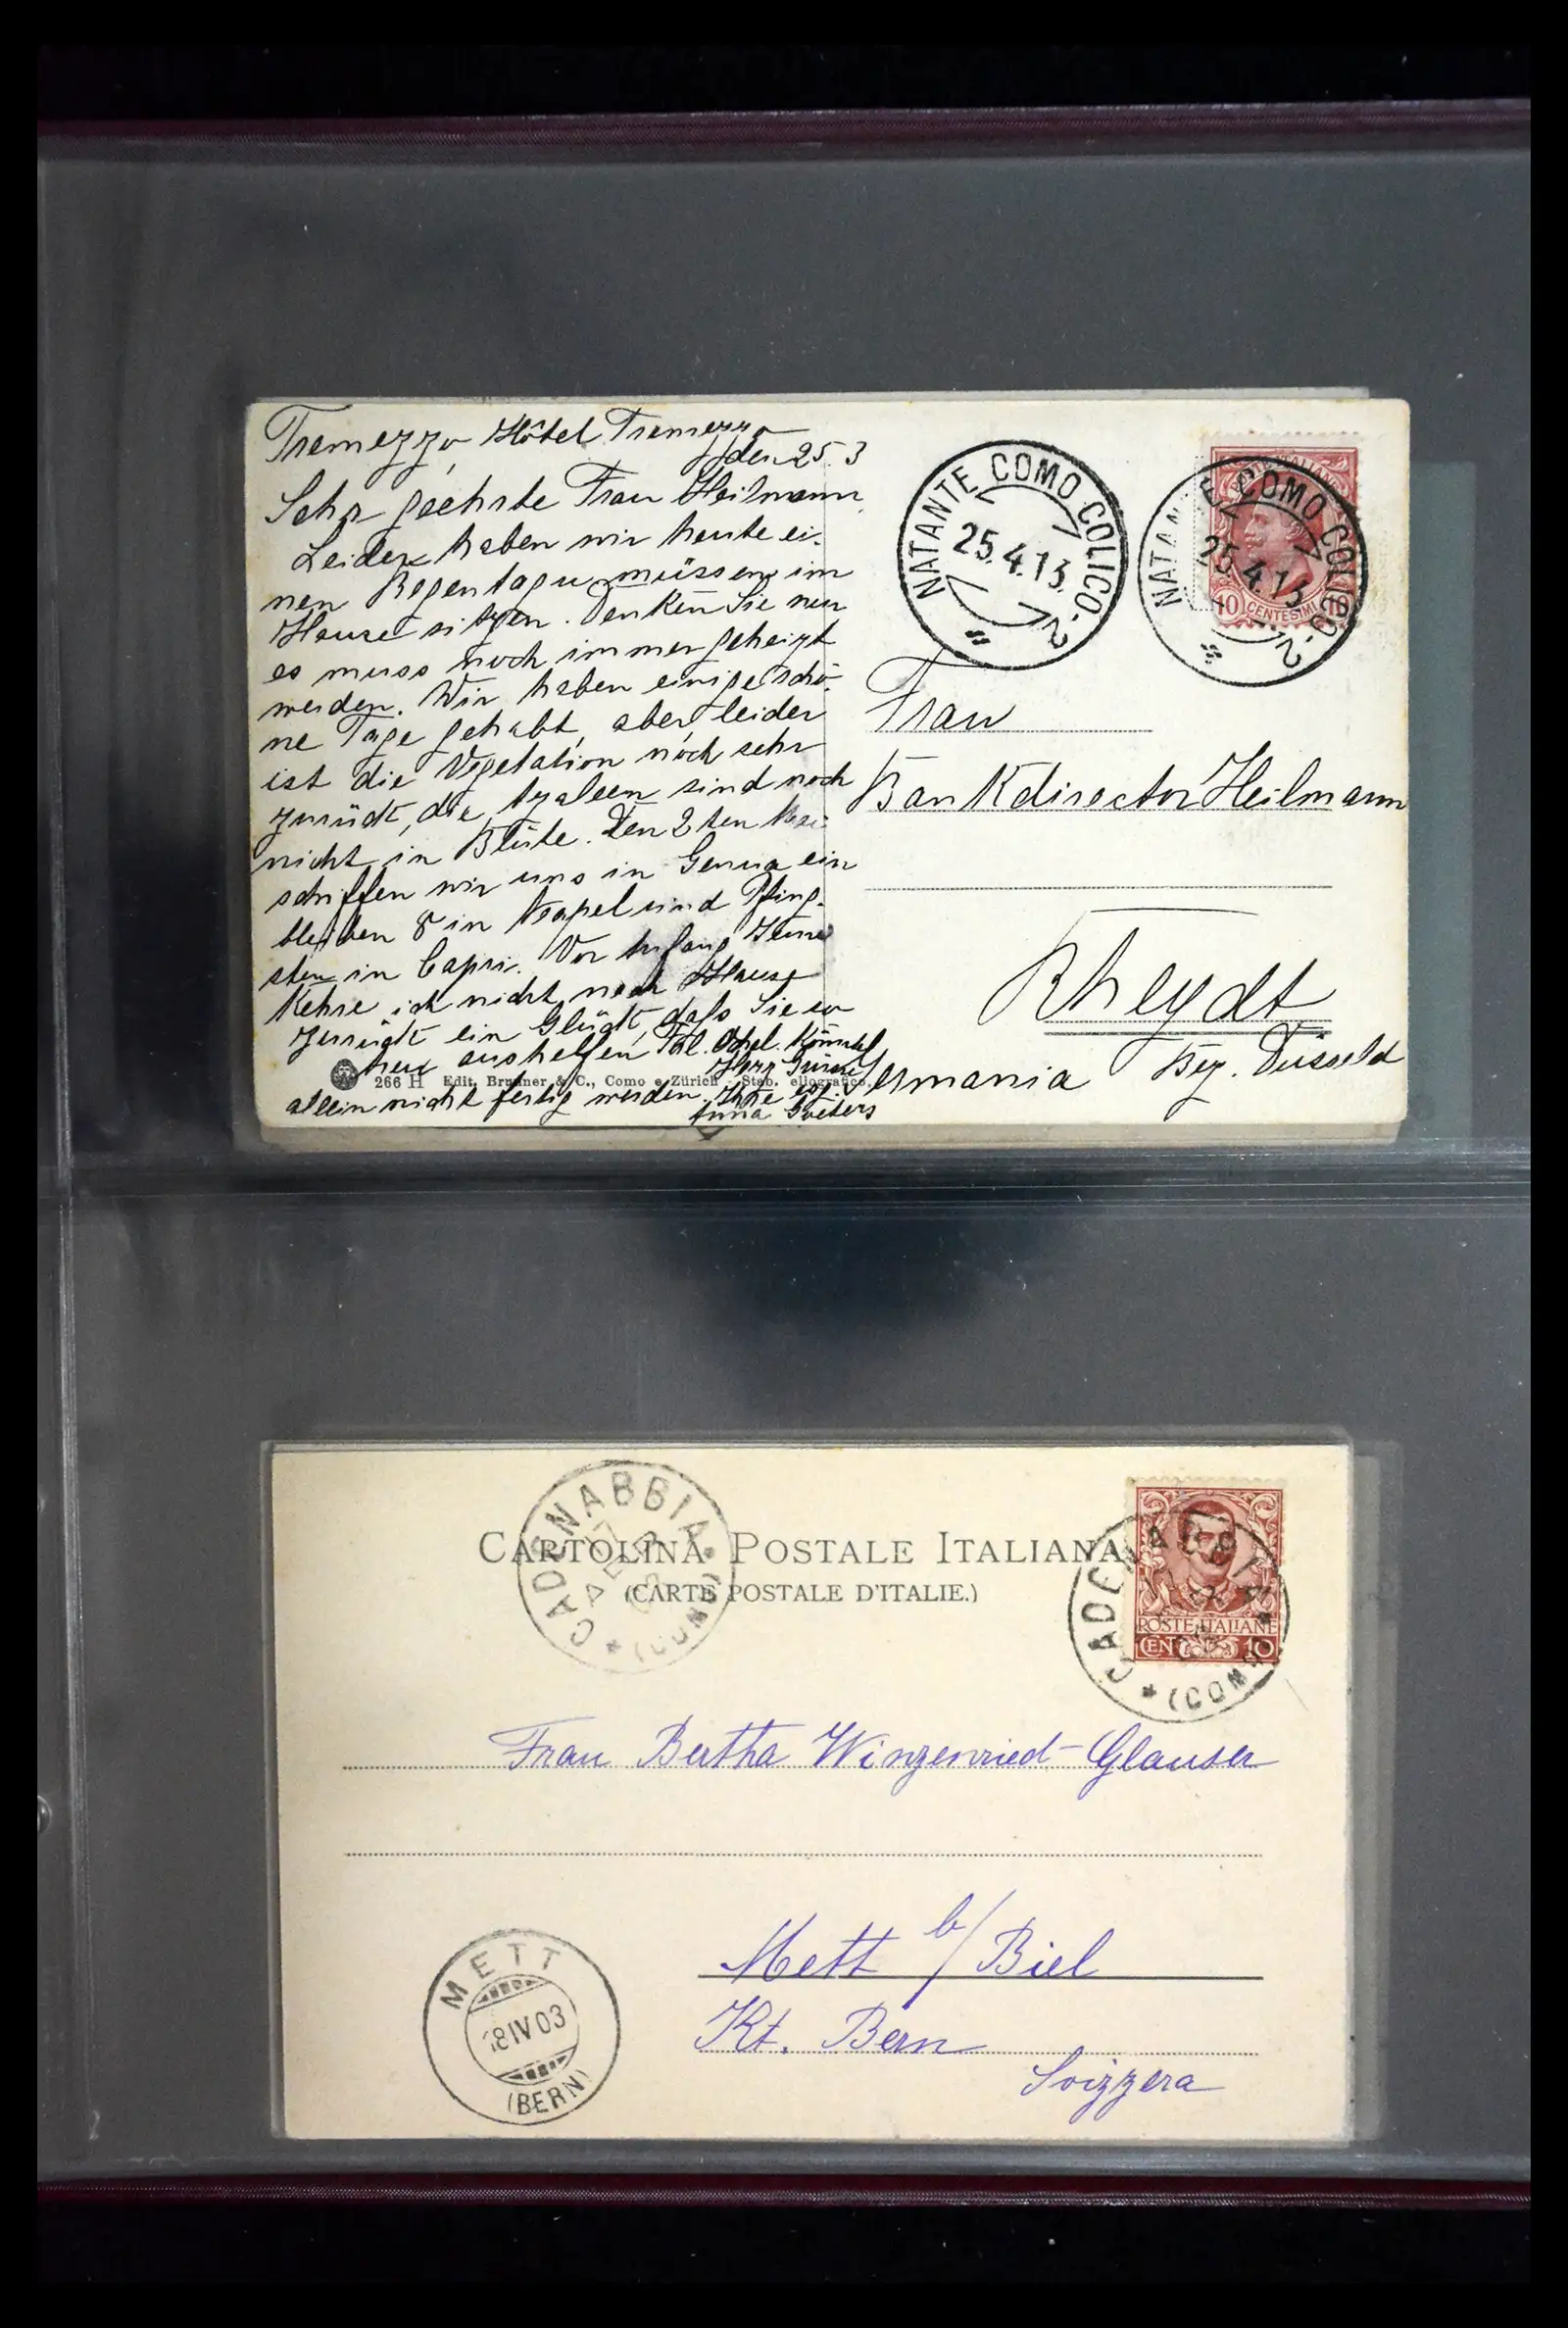 Tremezzo Hôtel Tremezzo
den 25.3
Sehr geehrte Frau Heilmann,
Leider haben wir heute ei-
nen Regentag u. müssen im
Hause sitzen. Denken Sie nur
es muss noch immer geheizt
werden. Wir haben einige schö-
ne Tage gehabt, aber leider
ist die Vegetation noch sehr
zurück, die Azaleen sind noch
nicht in Blüte. Den 2ten Mai
schiffen wir uns in Genua ein
bleiben 8 in Neapel und Pfing-
sten in Capri. Vor Anfang Juni
Kehre ich nicht nach Hause
zurück ein Glück, dass Sie so
treu aushelfen, Frl.
Herr
allein nicht fertig werden. Ihre
Anna Goeters
266 H Edit. Brunner & C., Como e Zürich - Stab. eliografico
NATANTE COMO COLICO-2
25.4.13
NATANTE COMO COLICO-2
25.4.13
10 CENTESIMI 10
Frau
Bankdirector Heilmann
Rheydt
Bez. Düsseld
Germania
CADENABBIA
(COMO)
CARTOLINA POSTALE ITALIANA
(CARTE POSTALE D'ITALIE.)
CADENABBIA
(COMO)
POSTE ITALIANE
CEN 10
Frau Bertha Winzenried-Glauser
Mett b/Biel
Kt. Bern
Svizzera
METT
18 IV 03
(BERN)